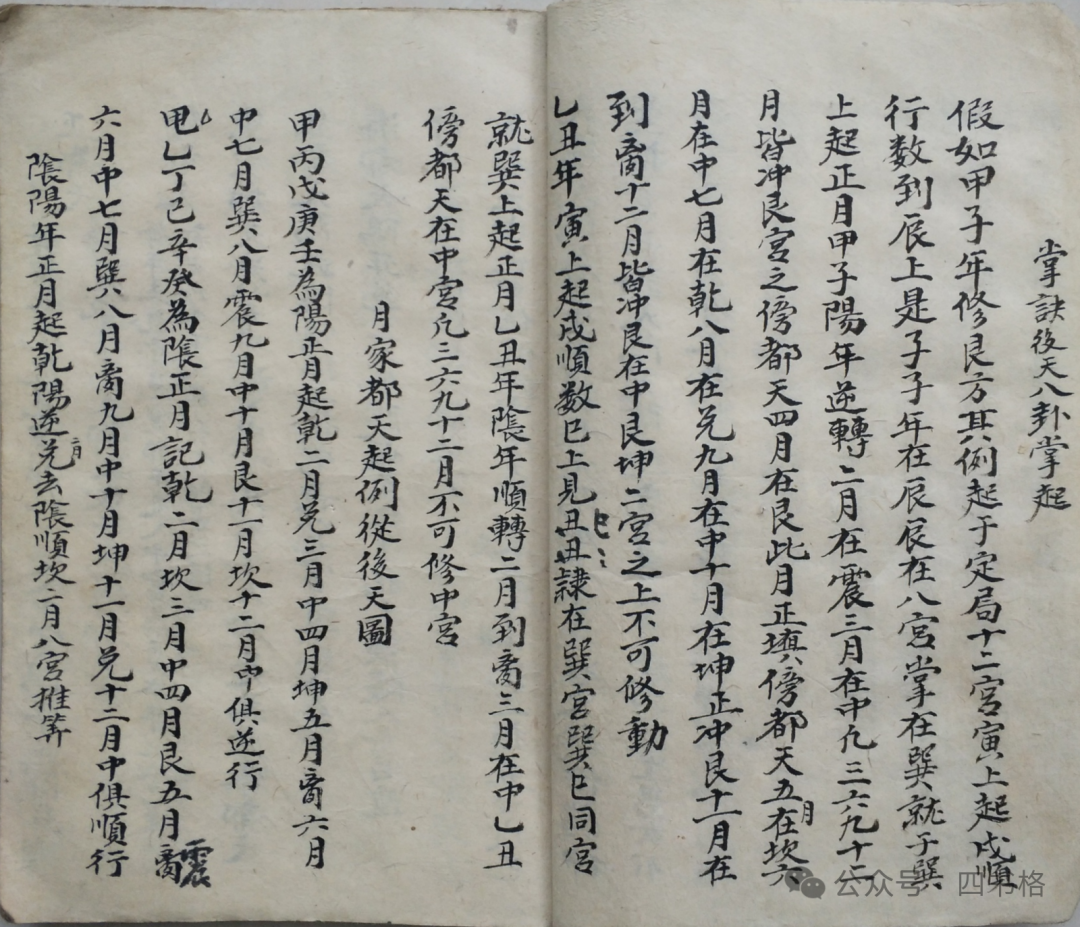 掌訣後天八卦掌起
假如甲子年修艮方其例起于定局十二宮寅上起戍順
行数到辰上是子子年在辰辰在八宮掌在巽就于巽
上起正月甲子陽年逆轉二月在震三月在中凢三六九十二
月皆冲艮宮之傍都天四月在艮此月正填傍都天五月在坎六
月在中七月在乾八月在兑九月在中十月在坤正冲艮十一月在
到离十二月皆冲艮在中艮坤二宮之上不可修動
乚丑年寅上起戍順数巳上見丑丑隷在巽宮巽巳同宮
就巽上起正月乚丑年陰年順轉二月到离三月在中乚丑
傍都天在中宮凢三六九十二月不可修中宮
月家都天起例從後天圖
甲丙戊庚壬為陽正月起乾二月兑三月中四月坤五月离六月
中七月巽八月震九月中十月艮十一月坎十二月中俱逆行
乚丁己辛癸為陰正月記乾二月坎三月中四月艮五月震
六月中七月巽八月离九月中十月坤十一月兑十二月中俱順行
陰陽年正月起乾陽逆二月兑去陰順坎二月八宮推筭
公众号 四弗格